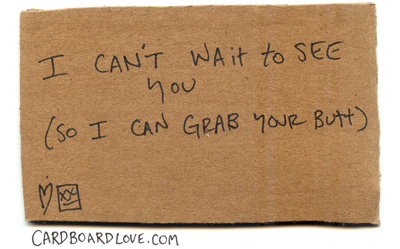 I CAN'T WAit to SEE
YOU
(SO I CAN GRAB YOUR Butt)
XX
CARDBOARDLOVE.COM